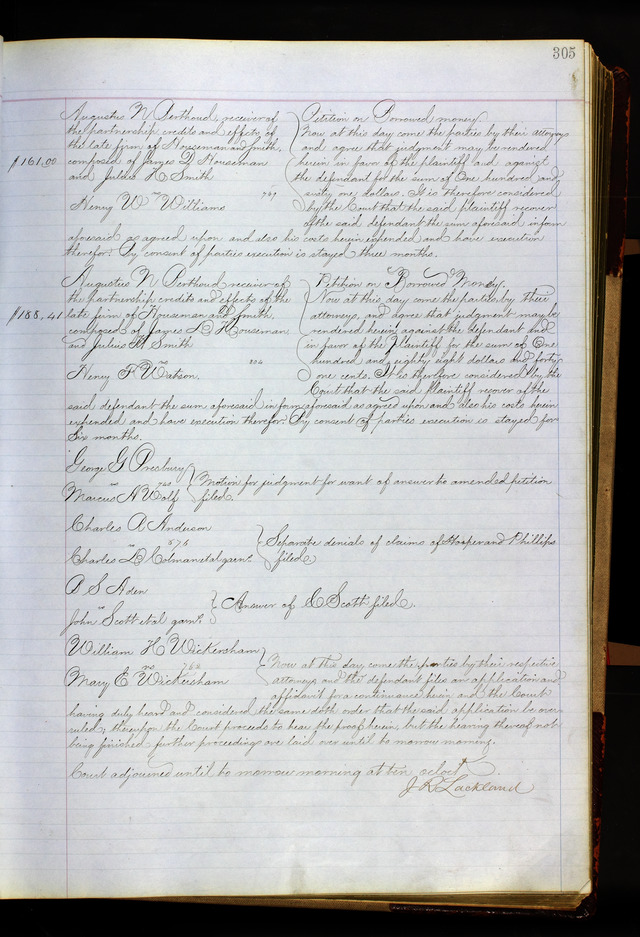 305
Augustus N Berthoud, receiver of
the partnership credits and effects of
the late firm of Houseman and Smith,
composed of James B Houseman
and Julius H Smith
$161,00
vs
Henry W Williams
Petition on Borrowed money
Now at this day come the parties by their attorneys
and agree that judgment may be rendered
herein in favor of the plaintiff and against
the defendant for the sum of One hundred and
sixty one dollars. It is therefore considered
by the Court that the said plaintiff recover
of the said defendant the sum aforesaid in form
aforesaid as agreed upon and also his costs herein expended and have execution
therefor. By consent of parties execution is stayed three months.
Augustus N Berthoud receiver of
the partnership credits and effects of the
late firm of Houseman and Smith,
composed of James B Houseman
and Julius H Smith
$188,41
vs
Henry F Watson.
Petition on Borrowed Money.
Now at this day come the parties by their
attorneys, and agree that judgment may be
rendered herein against the defendant and
in favor of the Plaintiff for the sum of One
hundred and eighty eight dollars and forty
one cents. It is therefore considered by the
Court that the said plaintiff recover of the
said defendant the sum aforesaid in form aforesaid as agreed upon and also his costs herein
expended and have execution therefor. By consent of parties execution is stayed for
Six months.
George G Presbury
vs
Marcus A Wolf
Motion for judgment for want of answer to amended petition
filed.
Charles A Anderson
vs 576
Charles D Colman et al garn.
Separate denials of claims of Hooper and Phillips
filed
A S Aden
vs
John Scott et al garn.
Answer of C Scott filed.
William H Wickersham
vs 768
Mary E Wickersham
Now at this day come the parties by their respective
attorneys and the defendant files an application and
affidavit for a continuance herein and the Court
having duly heard and considered the same doth order that the said application be over
ruled, thereupon the Court proceeds to hear the proof herein, but the hearing thereof not
being finished further proceedings are laid over until to morrow morning.
Court adjourned until to morrow morning at ten oclock.
J R Lackland